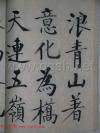 浪青山着
意化為橋
天連五嶺